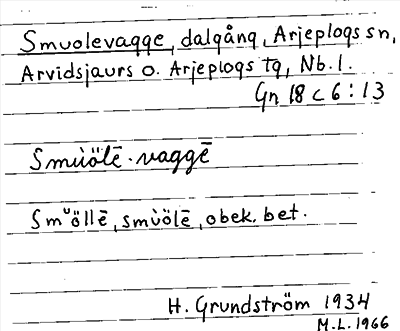 Smuolevagge, dalgång, Arjeplogs sn,
Arvidsjaurs o. Arjeplogs tg, Nb. l.
Gn 18 c 6 : 13
Smùölē-vaggē
Smᵘöllē, smùölē, obek. bet.
H. Grundström 1934
M.L. 1966